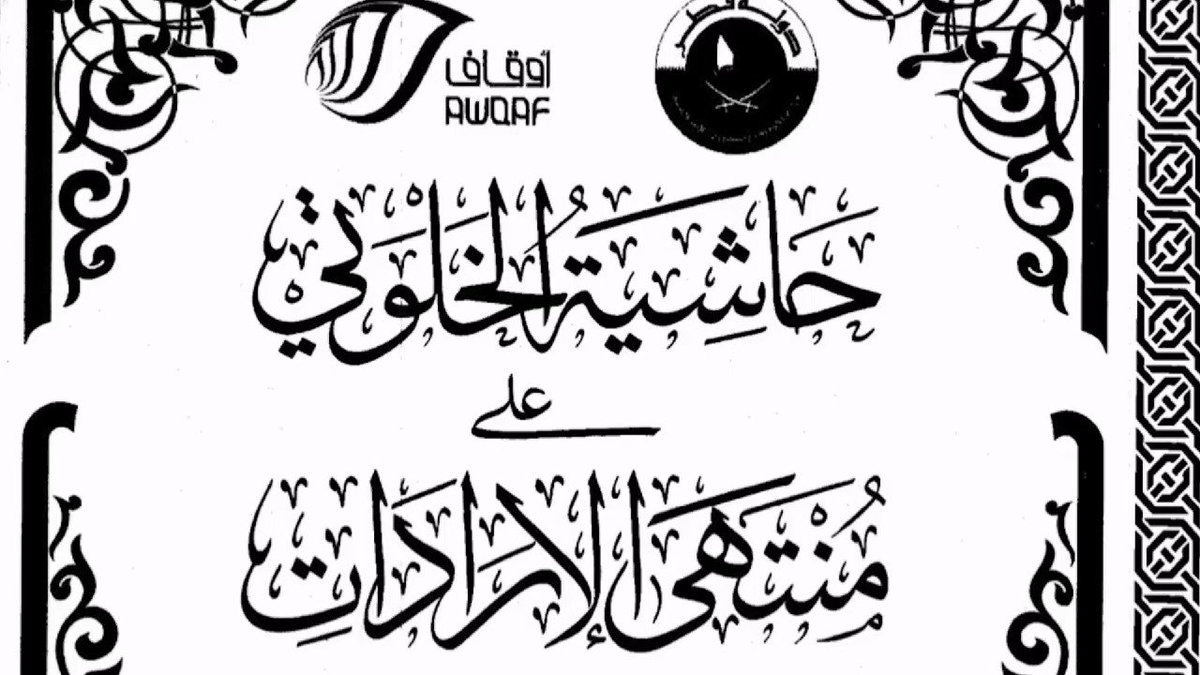 أوقاف
AWQAF
دولة قطر
حَاشِيَةُ الخَلْوَتِي
على
مُنْتَهَى الإِرَادَاتِ